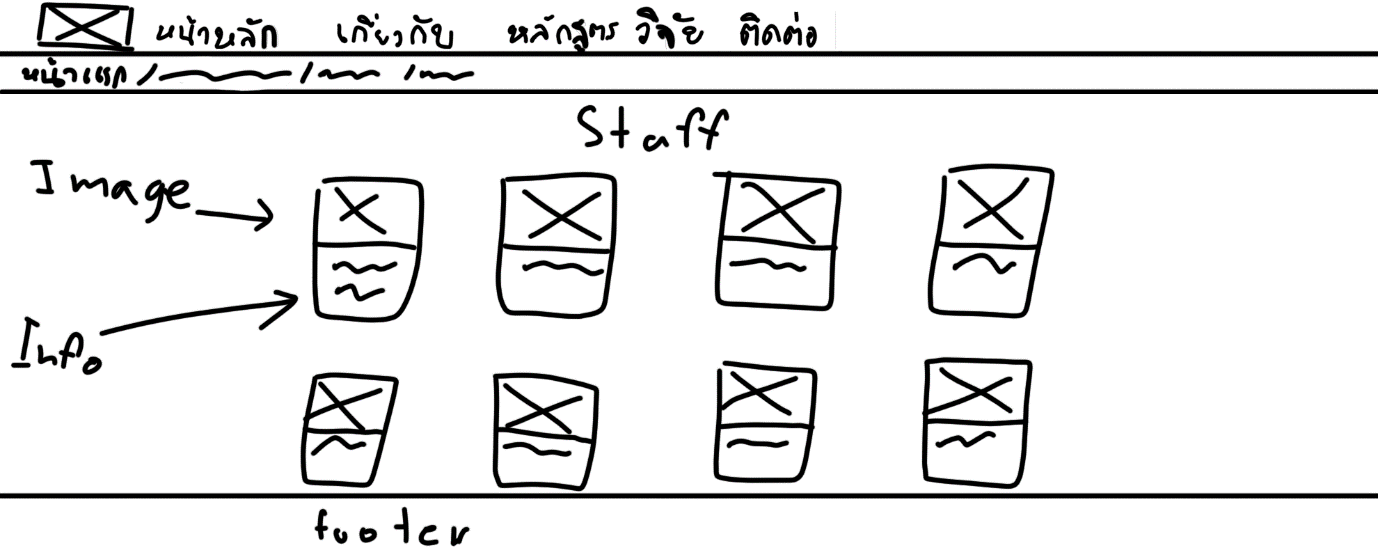 หน้าหลัก เกี่ยวกับ หลักสูตร วิจัย ติดต่อ
หน้าแรก / / /
Staff
Image
Info
footer